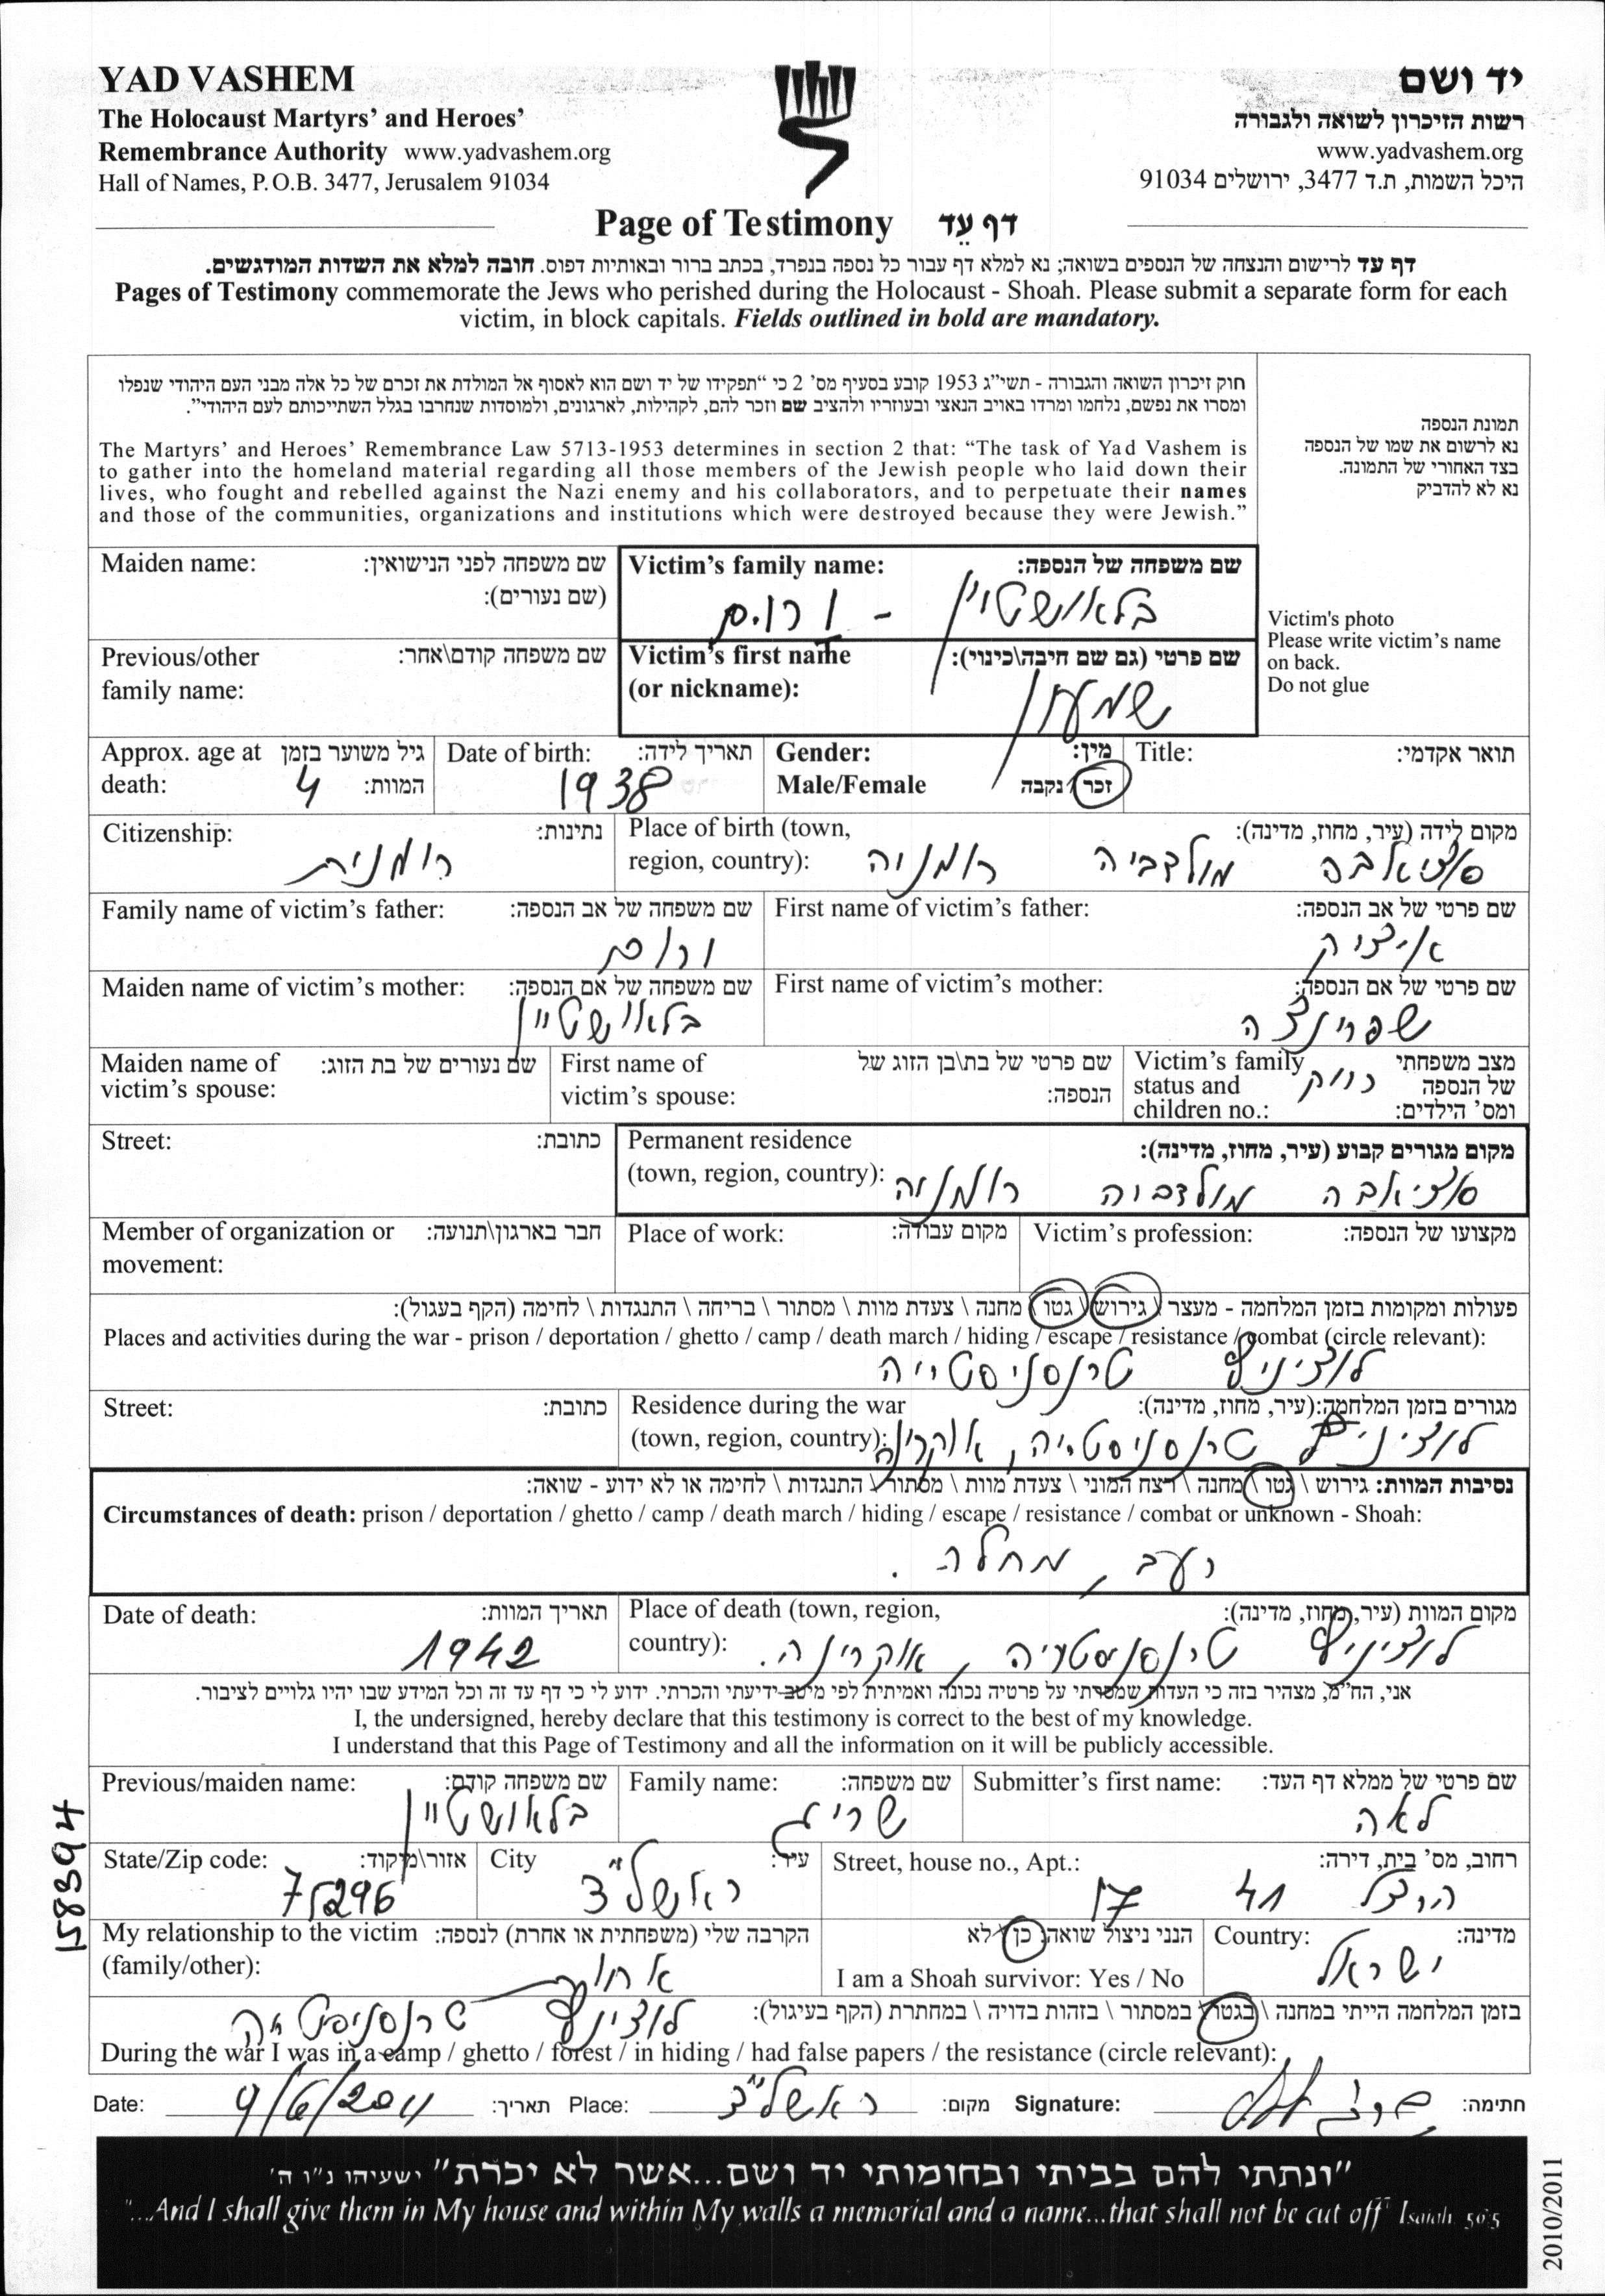 YAD VASHEM
The Holocaust Martyrs' and Heroes'
Remembrance Authority www.yadvashem.org
Hall of Names, P.O.B. 3477, Jerusalem 91034
יד ושם
רשות הזיכרון לשואה ולגבורה
www.yadvashem.org
היכל השמות, ת.ד 3477, ירושלים 91034
Page of Testimony דף עֵד
דף עד לרישום והנצחה של הנספים בשואה; נא למלא דף עבור כל נספה בנפרד, בכתב ברור ובאותיות דפוס. חובה למלא את השדות המודגשים.
Pages of Testimony commemorate the Jews who perished during the Holocaust - Shoah. Please submit a separate form for each
victim, in block capitals. Fields outlined in bold are mandatory.
חוק זיכרון השואה והגבורה - תשי"ג 1953 קובע בסעיף מס' 2 כי "תפקידו של יד ושם הוא לאסוף אל המולדת את זכרם של כל אלה מבני העם היהודי שנפלו
ומסרו את נפשם, נלחמו ומרדו באויב הנאצי ובעוזריו ולהציב שם וזכר להם, לקהילות, לארגונים, ולמוסדות שנחרבו בגלל השתייכותם לעם היהודי".
The Martyrs' and Heroes' Remembrance Law 5713-1953 determines in section 2 that: "The task of Yad Vashem is
to gather into the homeland material regarding all those members of the Jewish people who laid down their
lives, who fought and rebelled against the Nazi enemy and his collaborators, and to perpetuate their names
and those of the communities, organizations and institutions which were destroyed because they were Jewish."
תמונת הנספה
נא לרשום את שמו של הנספה
בצד האחורי של התמונה.
נא לא להדביק
Victim's photo
Please write victim's name
on back.
Do not glue
Maiden name: שם משפחה לפני הנישואין:
(שם נעורים):
Victim's family name: שם משפחה של הנספה:
בלאושטיין - ורום
Previous/other שם משפחה קודם\אחר:
family name:
Victim's first name שם פרטי (גם שם חיבה\כינוי):
(or nickname): שמעון
Approx. age at גיל משוער בזמן
death: 4 המוות:
Date of birth: תאריך לידה:
1938
Gender: מין:
Male/Female זכר / נקבה
Title: תואר אקדמי:
Citizenship: נתינות:
רומנית
Place of birth (town, מקום לידה (עיר, מחוז, מדינה):
region, country): סוצ'אבה מולדביה רומניה
Family name of victim's father: שם משפחה של אב הנספה:
ורום
First name of victim's father: שם פרטי של אב הנספה:
איציק
Maiden name of victim's mother: שם משפחה של אם הנספה:
בלאושטיין
First name of victim's mother: שם פרטי של אם הנספה:
שפרינצה
Maiden name of שם נעורים של בת הזוג:
victim's spouse:
First name of שם פרטי של בת\בן הזוג של
victim's spouse: הנספה:
Victim's family מצב משפחתי
status and רווק של הנספה
children no.: ומס' הילדים:
Street: כתובת:
Permanent residence מקום מגורים קבוע (עיר, מחוז, מדינה):
(town, region, country): סוצ'אבה מולדביה רומניה
Member of organization or חבר בארגון\תנועה:
movement:
Place of work: מקום עבודה:
Victim's profession: מקצועו של הנספה:
פעולות ומקומות בזמן המלחמה - מעצר \ גירוש \ גטו \ מחנה \ צעדת מוות \ מסתור \ בריחה \ התנגדות \ לחימה (הקף בעגול):
Places and activities during the war - prison / deportation / ghetto / camp / death march / hiding / escape / resistance / combat (circle relevant):
לוצ'יניץ טרנסניסטריה
Street: כתובת:
Residence during the war מגורים בזמן המלחמה:(עיר, מחוז, מדינה):
(town, region, country): לוצ'יניץ טרנסניסטריה, אוקרינה
נסיבות המוות: גירוש \ גטו \ מחנה \ רצח המוני \ צעדת מוות \ מסתור \ התנגדות \ לחימה או לא ידוע - שואה:
Circumstances of death: prison / deportation / ghetto / camp / death march / hiding / escape / resistance / combat or unknown - Shoah:
רעב, מחלה.
Date of death: תאריך המוות:
1942
Place of death (town, region, מקום המוות (עיר, מחוז, מדינה):
country): לוצ'יניץ טרנסניסטריה, אוקרינה.
אני, הח"מ, מצהיר בזה כי העדות שמסרתי על פרטיה נכונה ואמיתית לפי מיטב ידיעתי והכרתי. ידוע לי כי דף עד זה וכל המידע שבו יהיו גלויים לציבור.
I, the undersigned, hereby declare that this testimony is correct to the best of my knowledge.
I understand that this Page of Testimony and all the information on it will be publicly accessible.
Previous/maiden name: שם משפחה קודם:
בלאושטיין
Family name: שם משפחה:
שריג
Submitter's first name: שם פרטי של ממלא דף העד:
לאה
State/Zip code: אזור\מיקוד:
75296
City עיר:
ראשל"צ
Street, house no., Apt.: רחוב, מס' בית, דירה:
הרצל 41 17
My relationship to the victim הקרבה שלי (משפחתית או אחרת) לנספה:
(family/other): אחות
הנני ניצול שואה כן \ לא
I am a Shoah survivor: Yes / No
Country: מדינה:
ישראל
בזמן המלחמה הייתי במחנה \ בגטו \ במסתור \ בזהות בדויה \ במחתרת (הקף בעיגול):
לוצ'יניץ טרנסניסטריה
During the war I was in a camp / ghetto / forest / in hiding / had false papers / the resistance (circle relevant):
Date: 9/6/2011 תאריך: Place: ראשל"צ מקום: Signature: חתימה:
"ונתתי להם בביתי ובחומותי יד ושם...אשר לא יכרת" ישעיהו נ"ו ה'
"...And I shall give them in My house and within My walls a memorial and a name...that shall not be cut off" Isaiah 56:5
158394
2010/2011